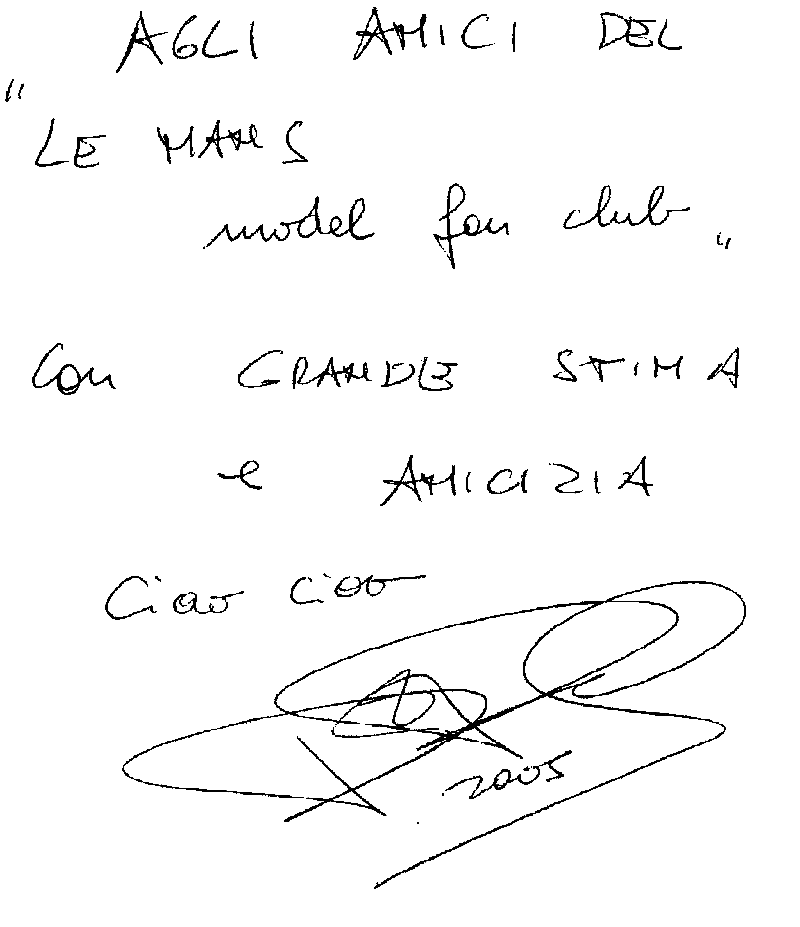 AGLI AMICI DEL
"LE MANS
model fan club"
Con GRANDE STIMA
e AMICIZIA
Ciao ciao
2005